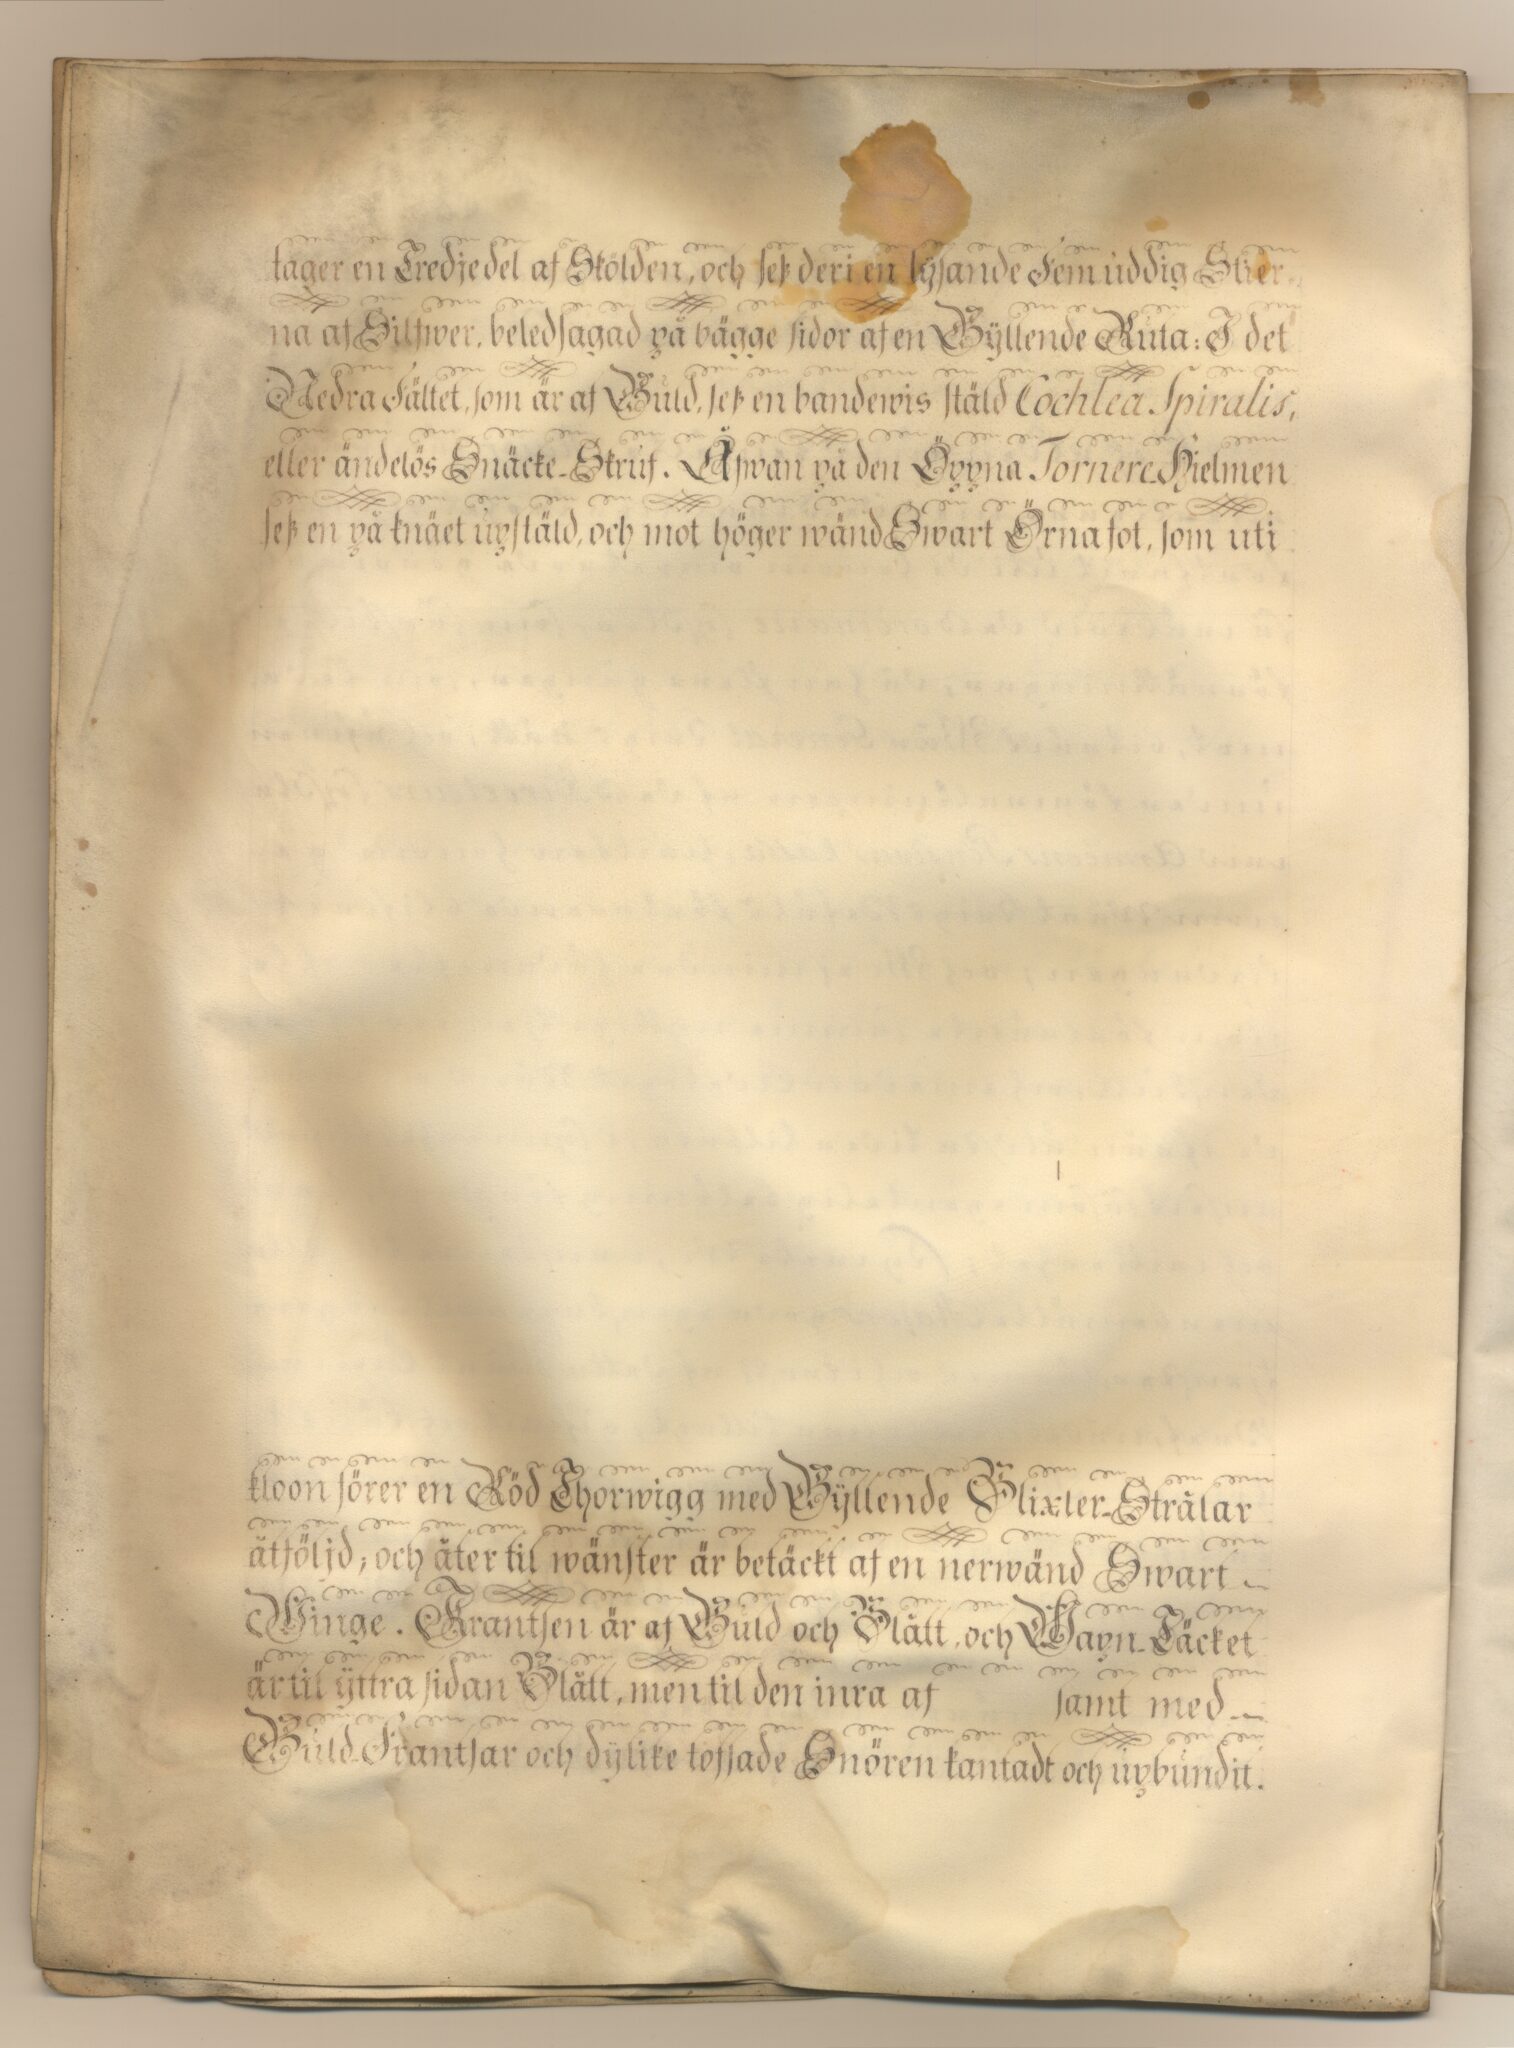 tager en Tredjedel af Skölden, och seß deri en lysande Femuddig Stier-
na af Silfwer, beledsagad på bägge sidor af en Gyllende Ruta: I det
Nedra Fältet, som är af Guld, seß en bandewis stäld Cochlea Spiralis,
eller ändelös Snäcke-Skruf. Åfwan på den Öppna Tornere-Hielmen
seß en på knäet upstäld, och mot höger wänd Swart Örnafot, som uti
kloon förer en Röd Thorwigg med Gyllende Blixter-Strålar
åtföljd, och åter til wänster är betäckt af en nerwänd Swart
Winge. Krantsen är af Guld och Blått, och Wapn-Täcket
är til yttra sidan Blått, men til den inra af samt med
Guld-Frantsar och dylike tofsade Snören kantadt och upbundit.